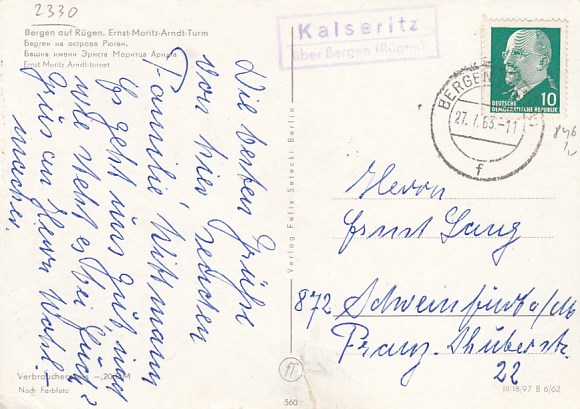 2330
Bergen auf Rügen. Ernst-Moritz-Arndt-Turm
Берген на острове Рюген.
Башня имени Эрнста Морица Арндта
Ernst Moritz Arndt-tornet
Kalseritz
über Bergen (Rügen)
BERGEN
27.7.63.-11
f
DEUTSCHE
DEMOKRATISCHE REPUBLIK
10
Die besten Grüße
von hier senden
Familie Wittmann
Es geht uns gut und
wie steht es bei Euch?
Gruß an Herrn Wohl-
machen.
Verlag Felix Setecki Berlin
Herrn
Ernst Lang
872 Schweinfurt a/M
Franz-Schuberstr.
22
Verbraucherpreis -,20 DM
Nach Farbfoto
560
III/18/97 B 6/62